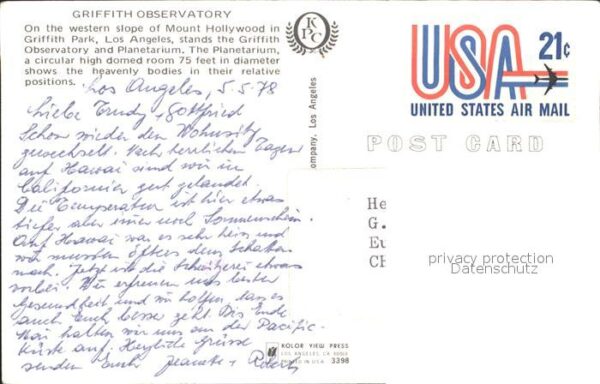 GRIFFITH OBSERVATORY
On the western slope of Mount Hollywood in
Griffith Park, Los Angeles, stands the Griffith
Observatory and Planetarium. The Planetarium,
a circular high domed room 75 feet in diameter
shows the heavenly bodies in their relative
positions.
Los Angeles, 5.5.78
Liebe Trudy + Gottfried
Schon wieder den Wohnsitz
gewechselt. Nach herrlichen Tagen
auf Hawai sind wir in
Californien gut gelandet.
Die Temperatur ist hier etwas
tiefer aber immer noch Sonnenschein.
Auf Hawai war es sehr heis und
wir mussten öfters dem Schatten
nach. Jetzt ist die Schwitzerei etwas
vorbei. Wir erfreuen uns bester
Gesundheit und wir hoffen, dass es
auch Euch besser geht. Bis Ende
Mai halten wir uns an der Pacific-
küste auf. Herzliche Grüsse
senden Euch Jeanette + Robert
KPC
ompany, Los Angeles
KOLOR VIEW PRESS
LOS ANGELES, CA
PRINTED IN U.S.A. 3398
USA 21¢
UNITED STATES AIR MAIL
POST CARD
He
G.
Eu
CH
privacy protection
Datenschutz